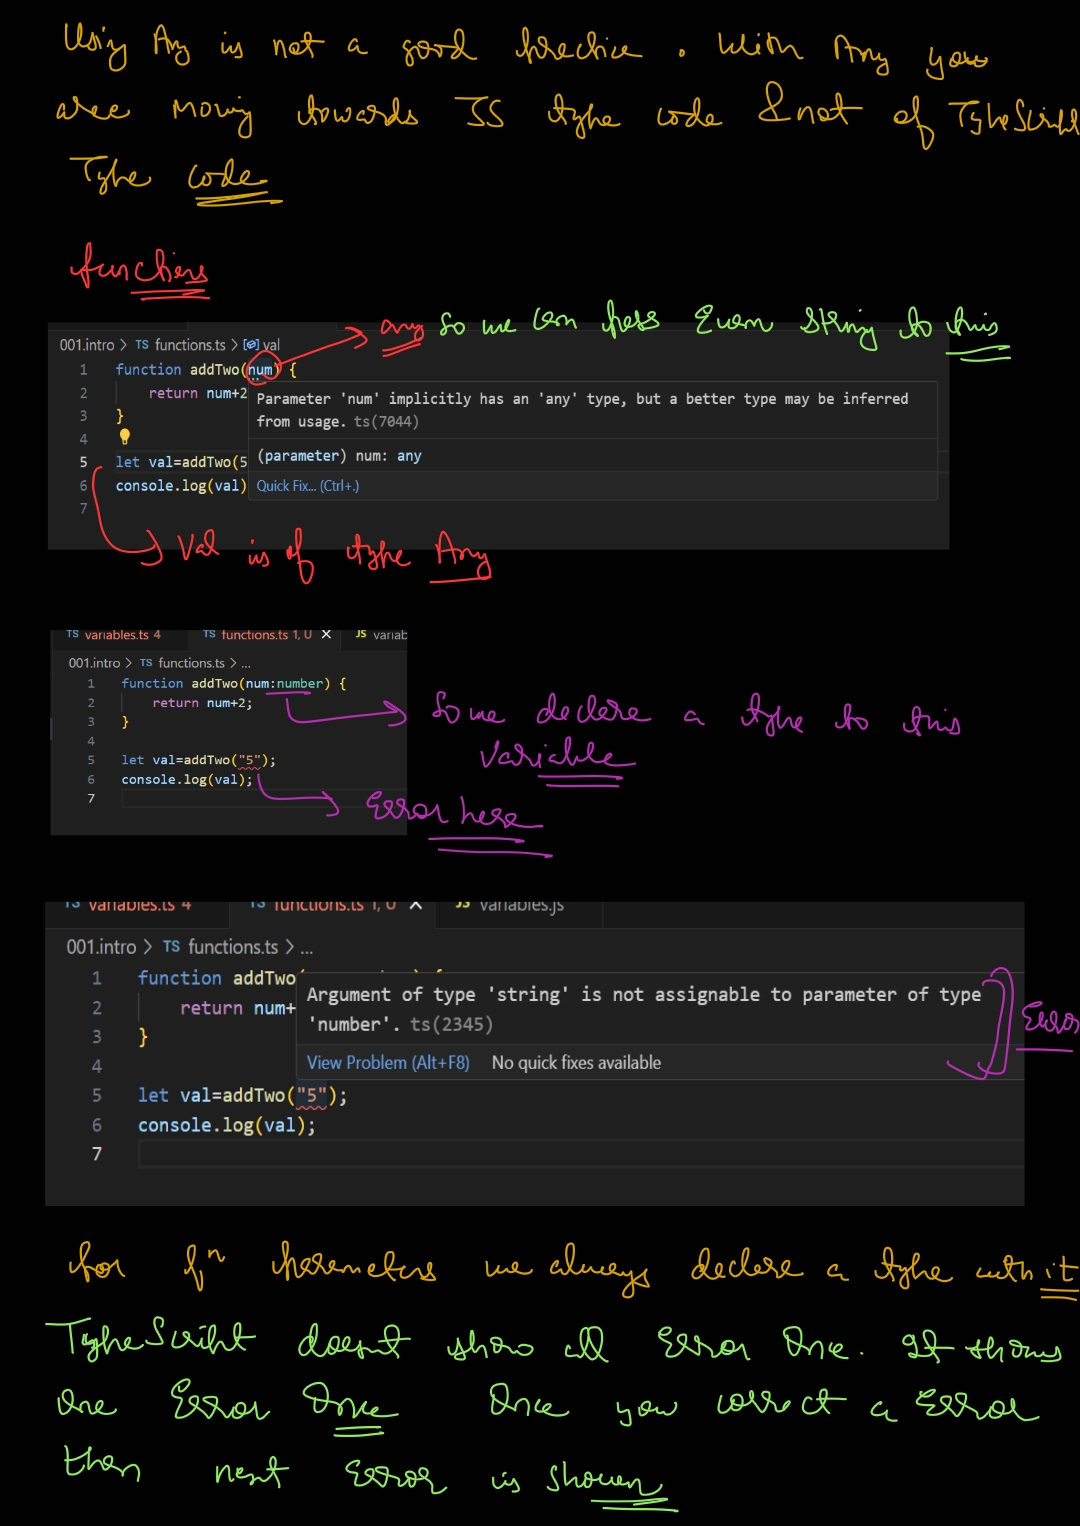 Using Any is not a good practice. With Any you
are moving towards JS type code & not of TypeScript
Type code
functions
any So we can pass Even String to this
001.intro > TS functions.ts > val
1 function addTwo(num) {
2 return num+2
3 }
4
5 let val=addTwo(5
6 console.log(val)
7
Parameter 'num' implicitly has an 'any' type, but a better type may be inferred
from usage. ts(7044)
(parameter) num: any
Quick Fix... (Ctrl+.)
Val is of type Any
TS variables.ts 4 TS functions.ts 1, U X JS variab
001.intro > TS functions.ts > ...
1 function addTwo(num:number) {
2 return num+2;
3 }
4
5 let val=addTwo("5");
6 console.log(val);
7
So we declare a type to this
Variable
Error here
TS variables.ts 4 TS functions.ts 1, U X JS variables.js
001.intro > TS functions.ts > ...
1 function addTwo
2 return num+
3 }
4
5 let val=addTwo("5");
6 console.log(val);
7
Argument of type 'string' is not assignable to parameter of type
'number'. ts(2345)
View Problem (Alt+F8) No quick fixes available
Error
for fⁿ paremeters we always declare a type with it
TypeScript doesnt show all Error One. It shows
One Error Once Once you correct a Error
then next Error is Shown